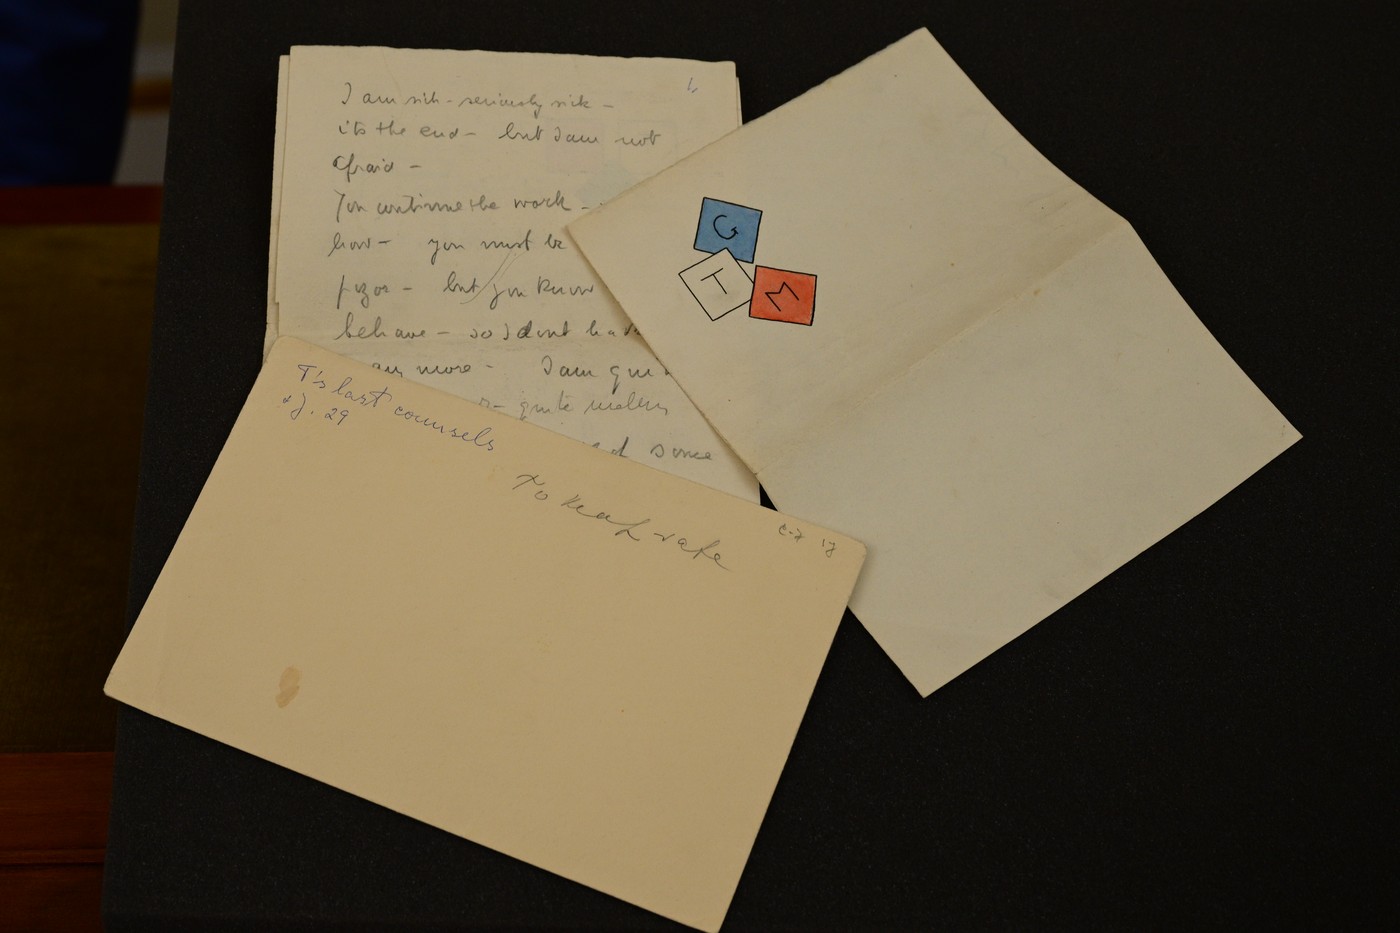 I am sick - seriously sick -
its the end - but I am not
afraid -
You continue the work -
how - you must be
but you know
behave - so I dont ha
any more - I am qui
quite
some
G
T
M
T's last counsels
29
To keap safe